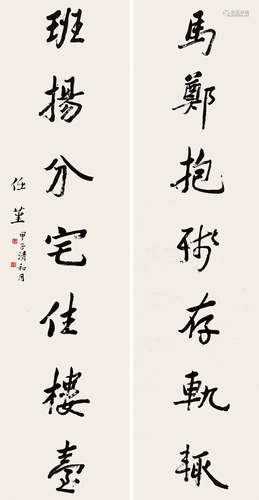 馬鄭抱殘存軌
班揚分宅住樓臺
任堇
甲子清和月